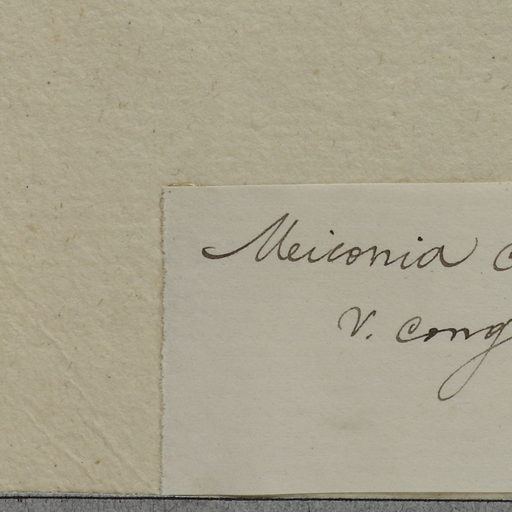 Meiconia c
v. cong